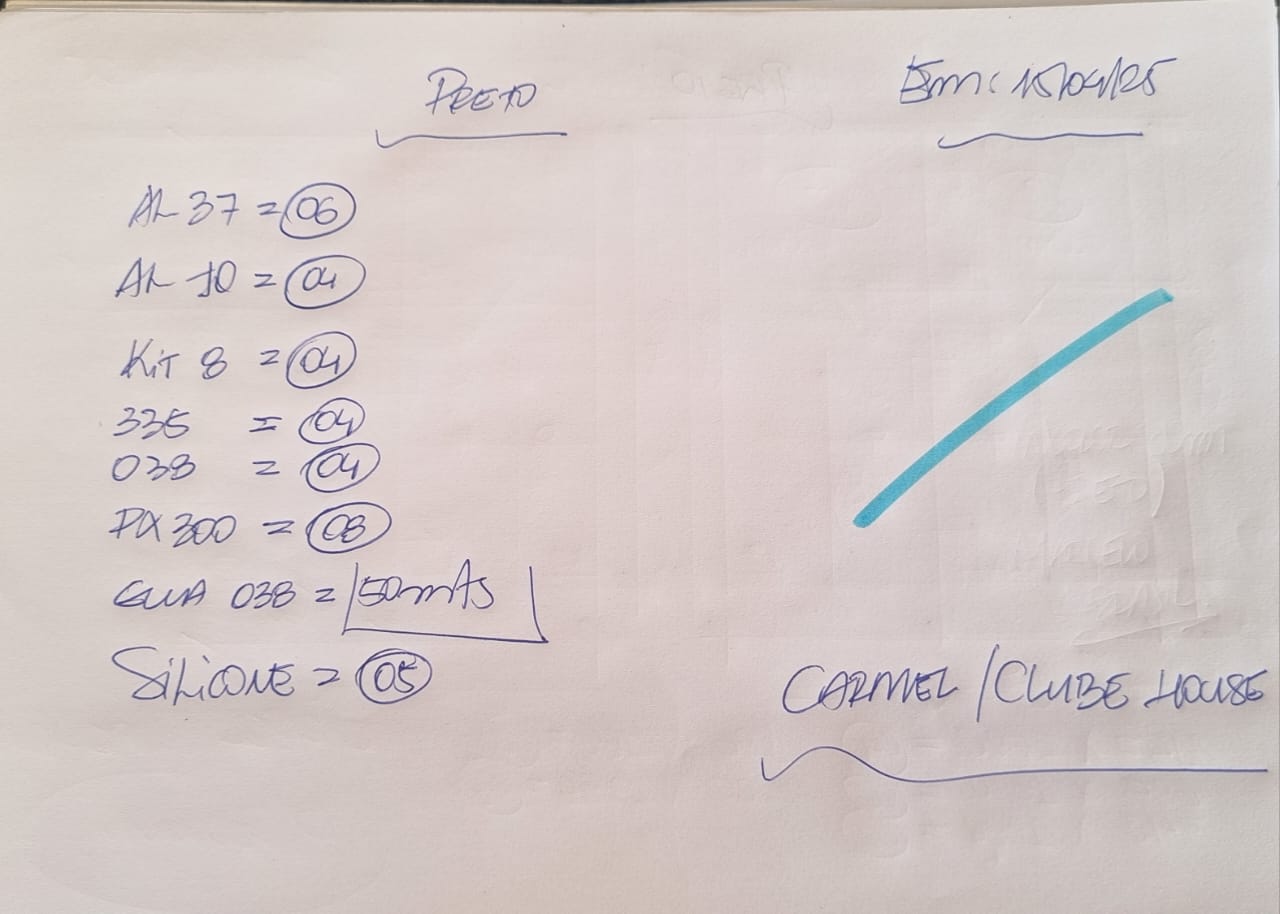 PRETO
Em: 15/04/25
AL 37 = 06
AL 10 = 04
KiT 8 = 04
335 = 04
038 = 04
PX 300 = 08
038 = 50mts
SiLiCONE = 05
CARMEL / CLUBE HOUSE